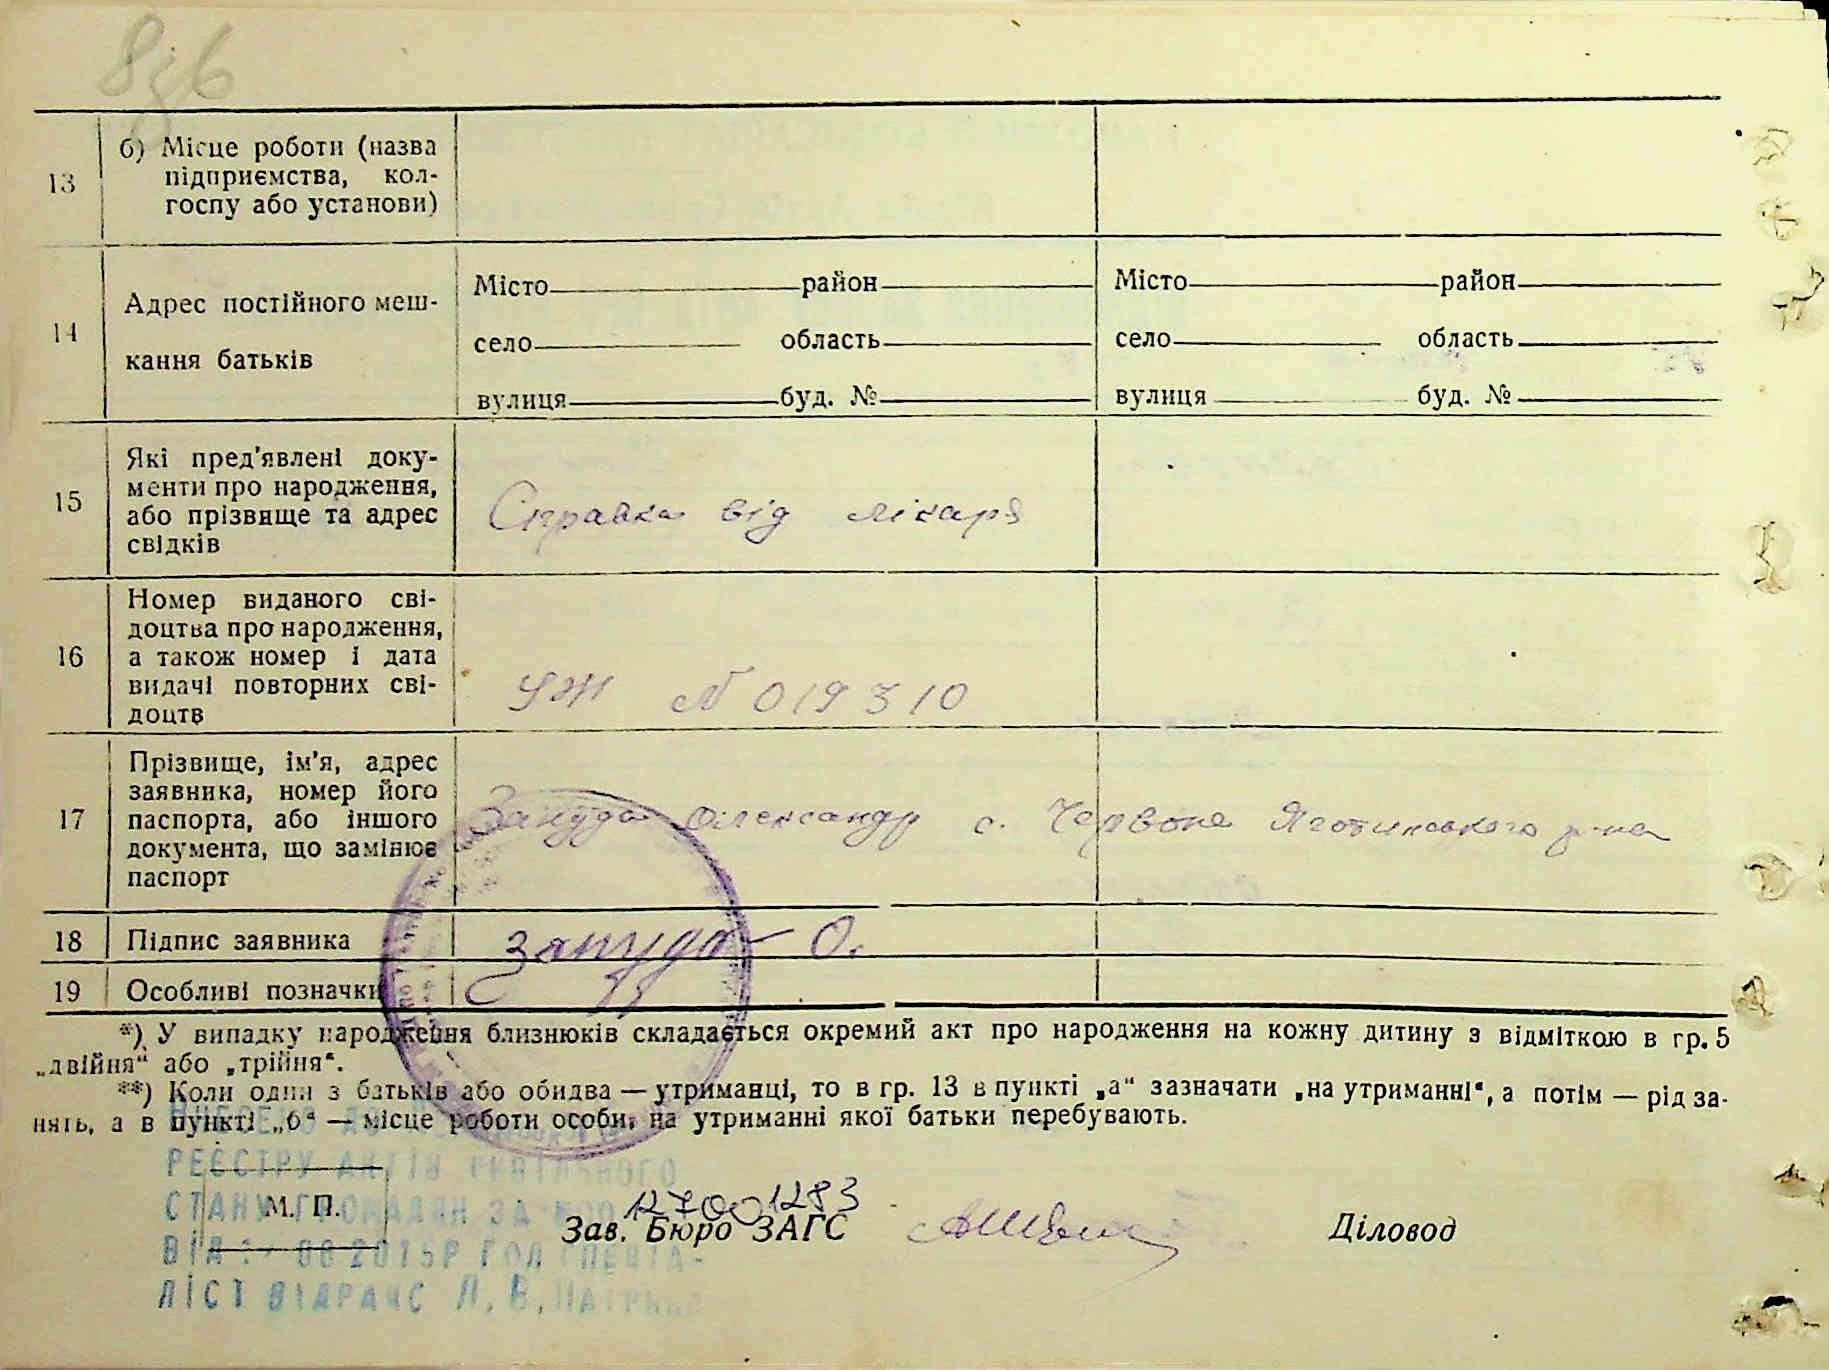 8зб
13 б) Місце роботи (назва
підприємства, кол-
госпу або установи)
14 Адрес постійного меш-
кання батьків
Місто район Місто район
село область село область
вулиця буд. № вулиця буд. №
15 Які пред'явлені доку-
менти про народження,
або прізвище та адрес
свідків
Справка від лікаря
16 Номер виданого сві-
доцтва про народження,
а також номер і дата
видачі повторних сві-
доцтв
УЖ N 019310
17 Прізвище, ім'я, адрес
заявника, номер його
паспорта, або іншого
документа, що замінює
паспорт
Зануда Олександр с. Червоне Яготинського р-на
18 Підпис заявника Зануда О.
19 Особливі позначки
*) У випадку народження близнюків складається окремий акт про народження на кожну дитину з відміткою в гр. 5
„двійня“ або „трійня“.
**) Коли один з батьків або обидва — утриманці, то в гр. 13 в пункті „а“ зазначати „на утриманні“, а потім — рід за-
нять, а в пункті „б“ — місце роботи особи, на утриманні якої батьки перебувають.
РЕЄСТРУ АКТІВ ЦИВІЛЬНОГО
СТАНУ ГРОМАДЯН ЗА
М. П.
127001283
Зав. Бюро ЗАГС Діловод
ВІД 08 2015Р ГОЛ СПЕЦІА-
ЛІСТ ВІДРАЦС Л. В.